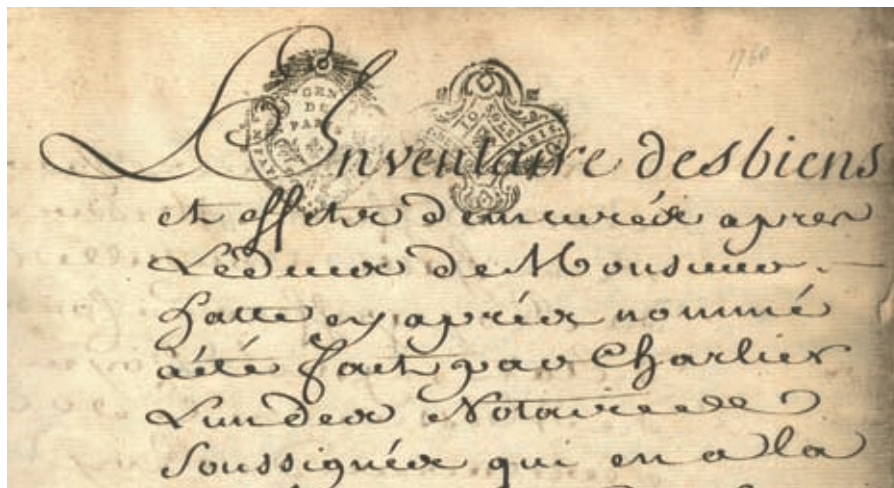 1760
GEN
DE
PARIS
L'Inventaire des biens
et effets demeurés apres
Le deces de Monsieur
hatte cy après nommé
a été fait par Charlier
L'un des Notaires
Soussignés qui en a la